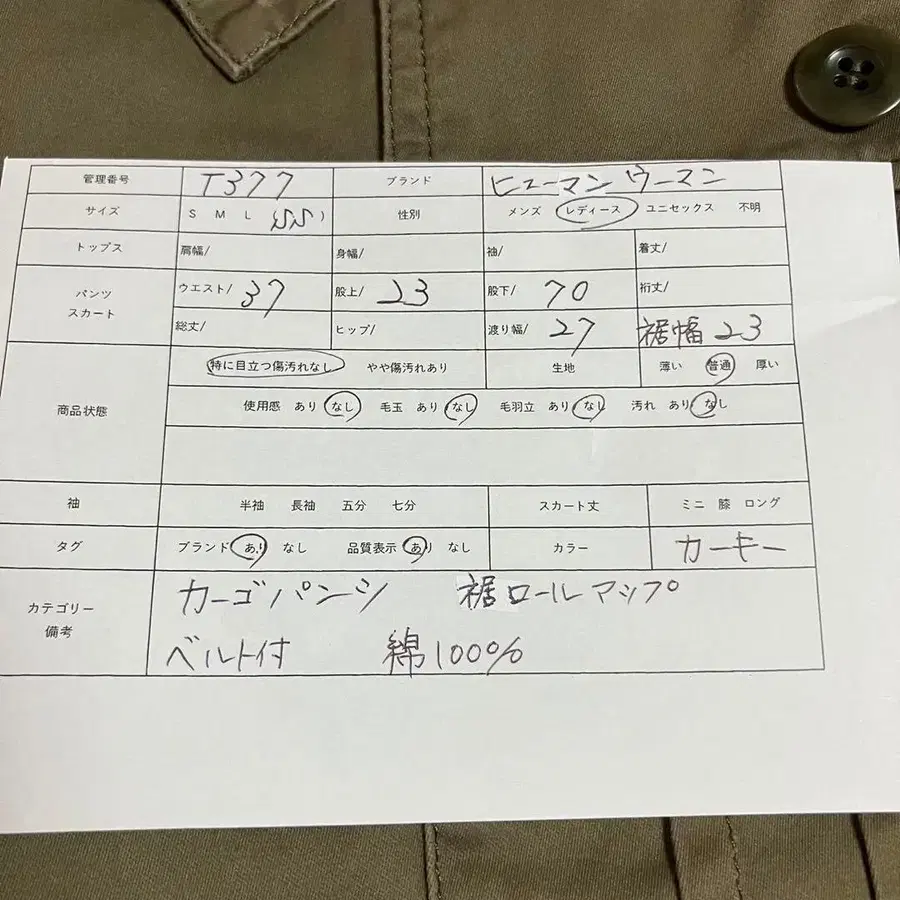 管理番号 T377 ブランド ヒューマンウーマン
サイズ S M L (SS) 性別 メンズ レディース ユニセックス 不明
トップス 肩幅/ 身幅/ 袖/ 着丈/
パンツ スカート ウエスト/ 37 股上/ 23 股下/ 70 裄丈/
総丈/ ヒップ/ 渡り幅/ 27 裾幅 23
商品状態 特に目立つ傷汚れなし やや傷汚れあり 生地 薄い 普通 厚い
使用感 あり なし 毛玉 あり なし 毛羽立 あり なし 汚れ あり なし
袖 半袖 長袖 五分 七分 スカート丈 ミニ 膝 ロング
タグ ブランド あり なし 品質表示 あり なし カラー カーキー
カテゴリー 備考 カーゴパンツ 裾ロールマップ
ベルト付 綿100%